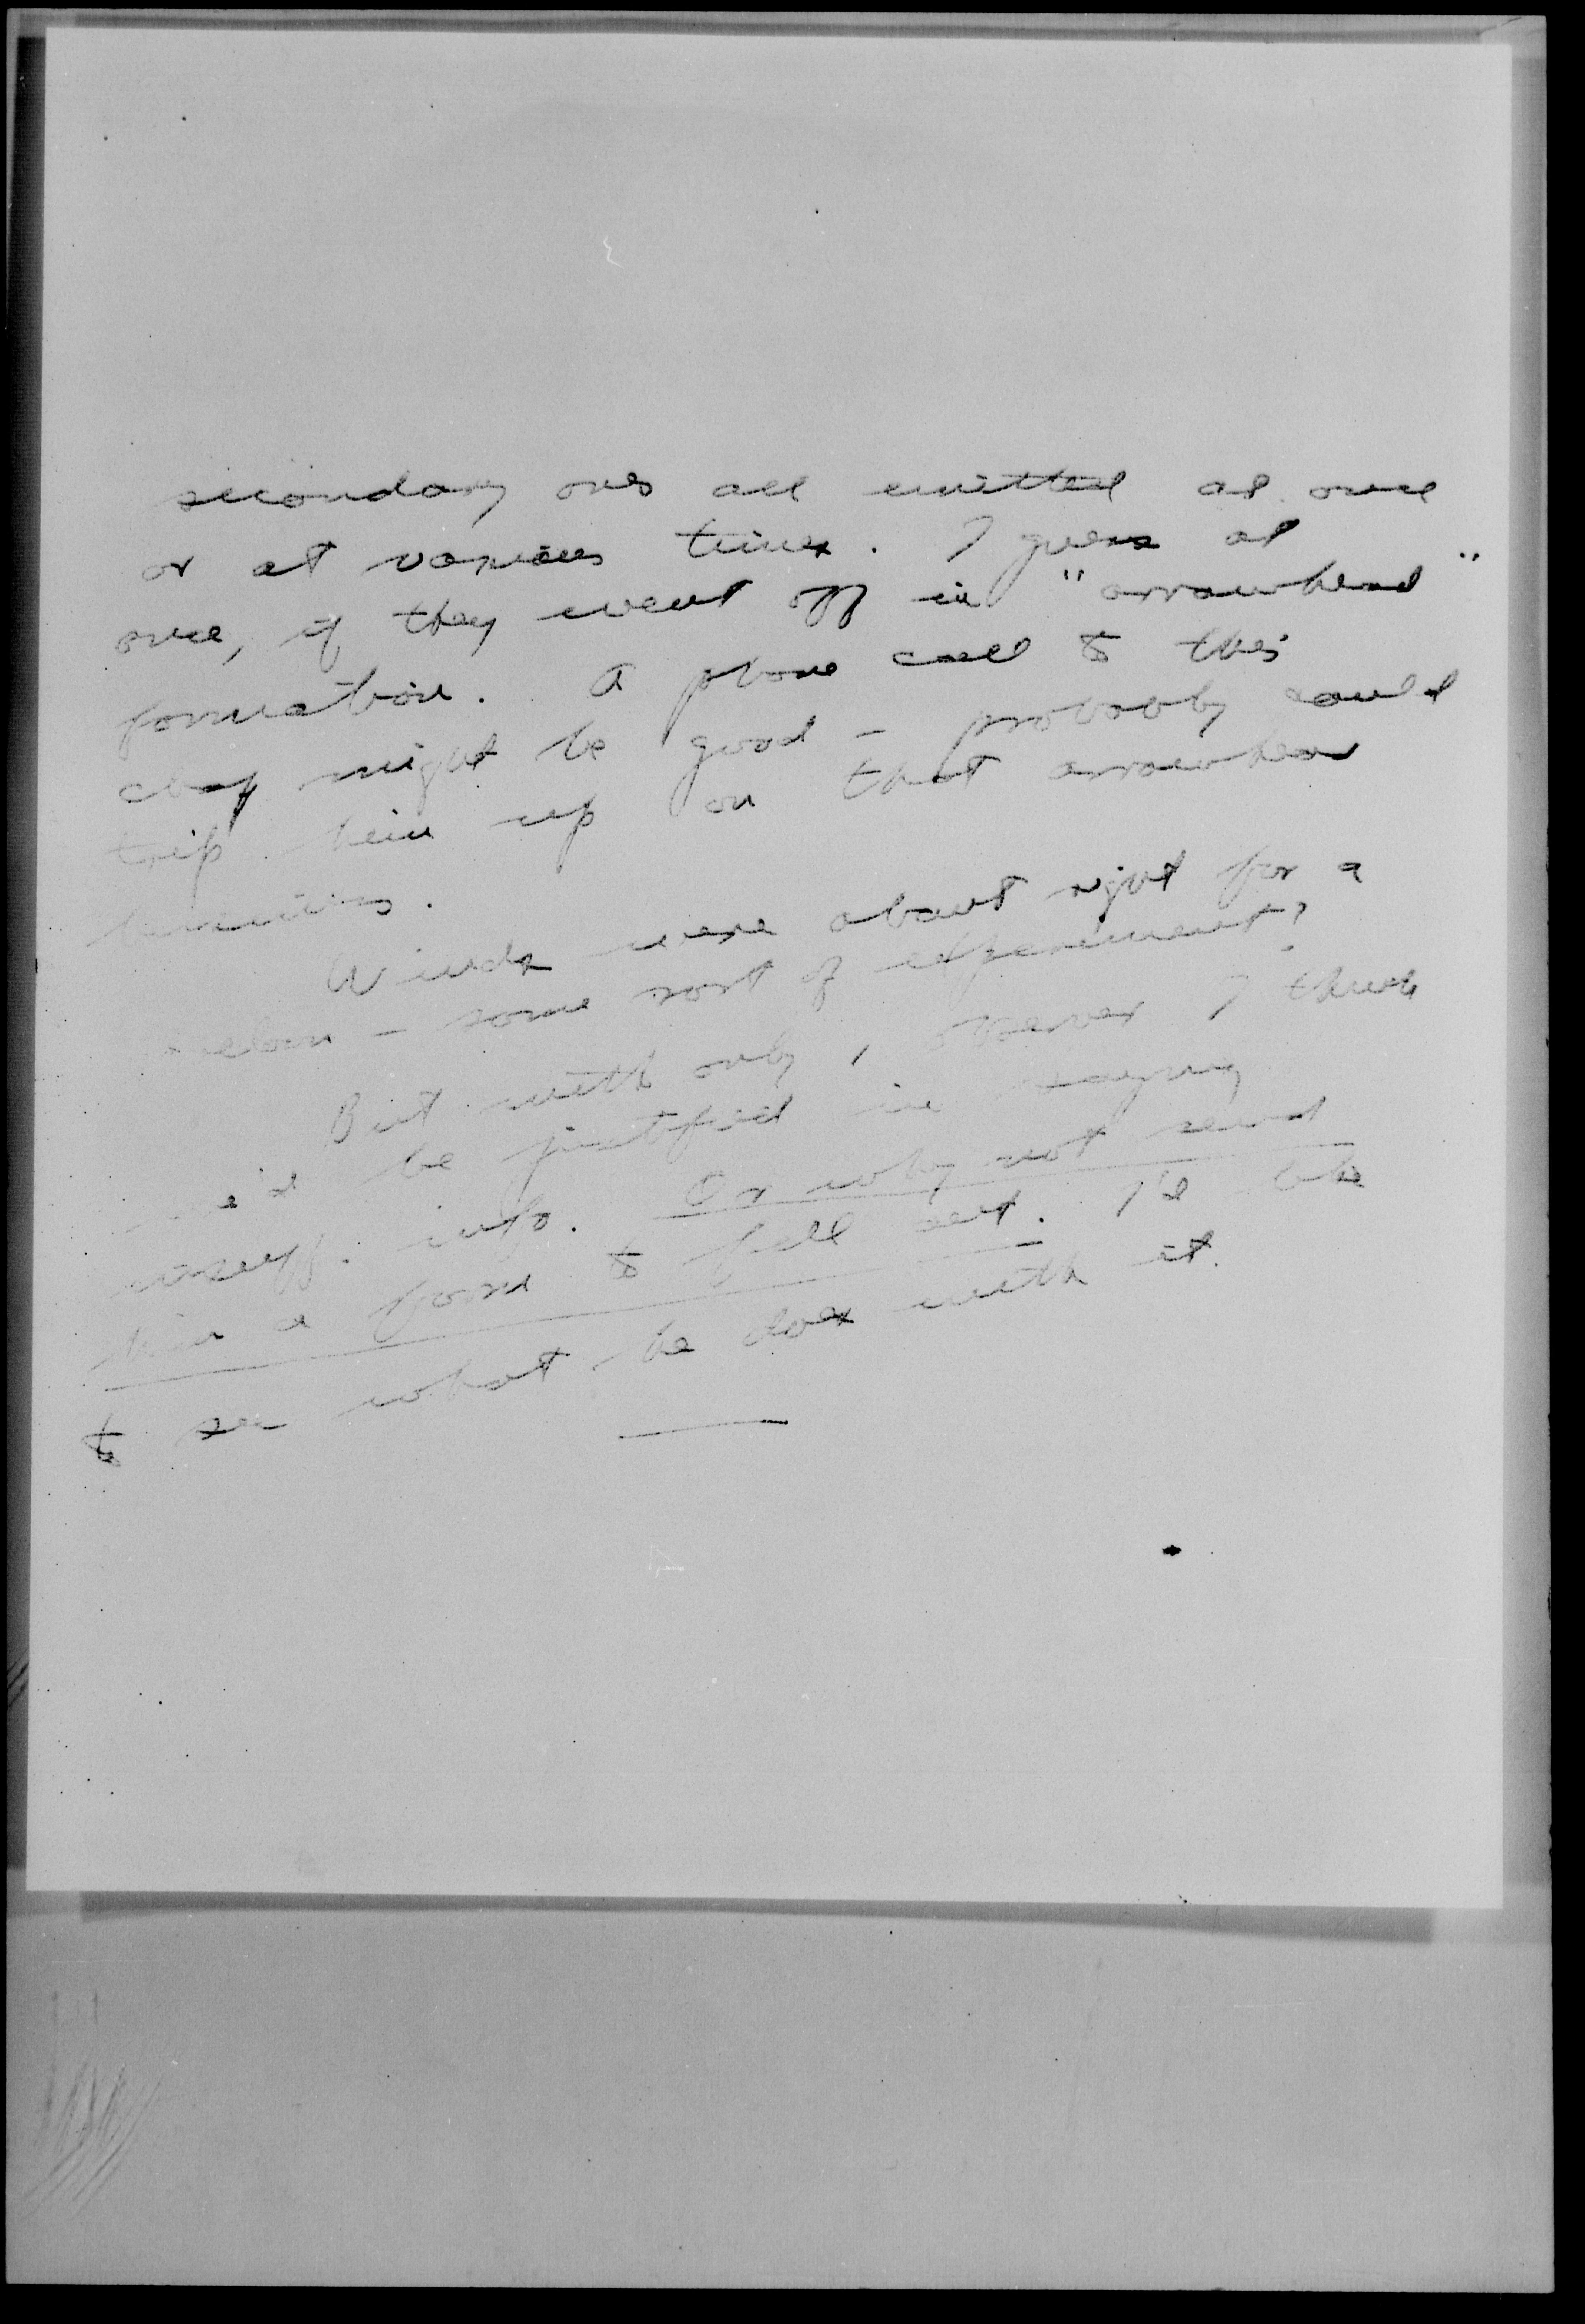 secondary ones all emitted at once
or at various times. I guess at
once, if they went off in "arrowhead"
formation. A phone call to this
chap might be good - probably could
trip him up on that arrowhead
business.
Winds were about right for a
balloon - some sort of experiment?
But with only 1 observer I think
we'd be justified in saying
insuff. info. Or why not send
him a form to fill out. I'd like
to see what he does with it.